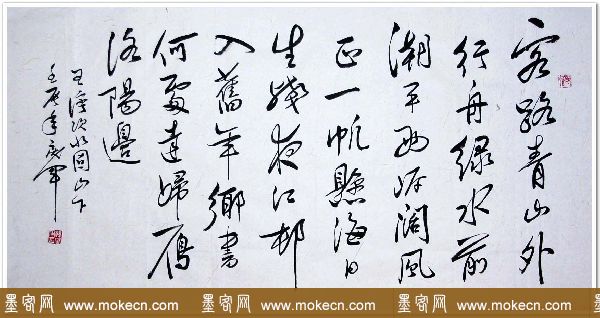 客路青山外
行舟绿水前
潮平两岸阔風
正一帆懸海日
生殘夜江邨
入舊年鄉書
何處達歸雁
洛陽邊
王湾次北固山下
壬辰年
墨客网 www.mokecn.com 墨客网 www.mokecn.com 墨客网 www.mokecn.com